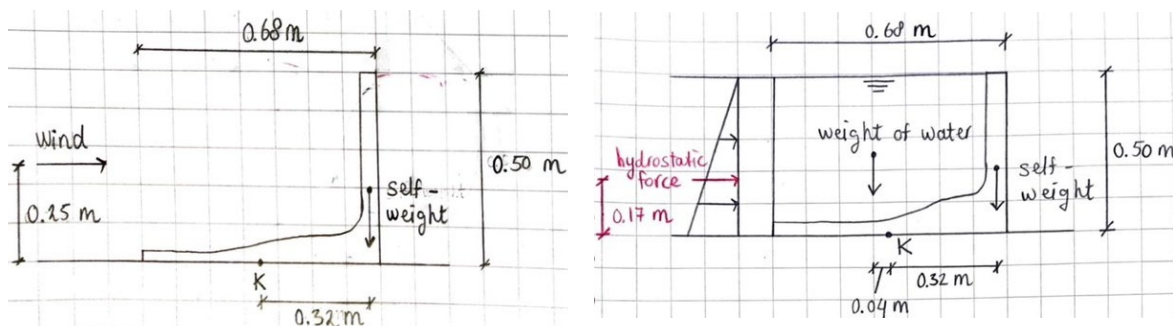 0.68 m
Wind
0.15 m
self-
weight
0.50 m
K
0.32 m
0.68 m
weight of water
hydrostatic
force
0.17 m
self-
weight
0.50 m
K
0.32 m
0.04 m